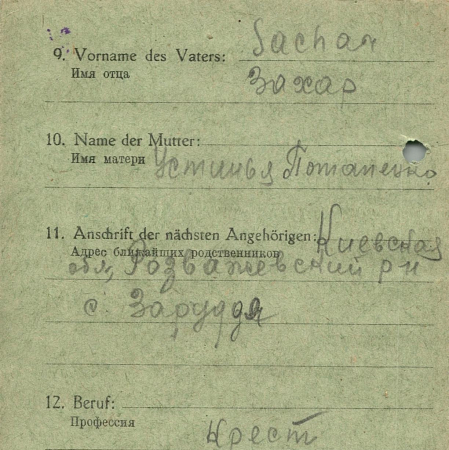 9. Vorname des Vaters: Sachar
Имя отца Захар
10. Name der Mutter:
Имя матери Устинья Потапенко
11. Anschrift der nächsten Angehörigen: Киевская
Адрес ближайших родственников
обл, Розважевский рн
с. Заруддя
12. Beruf:
Профессия Крест